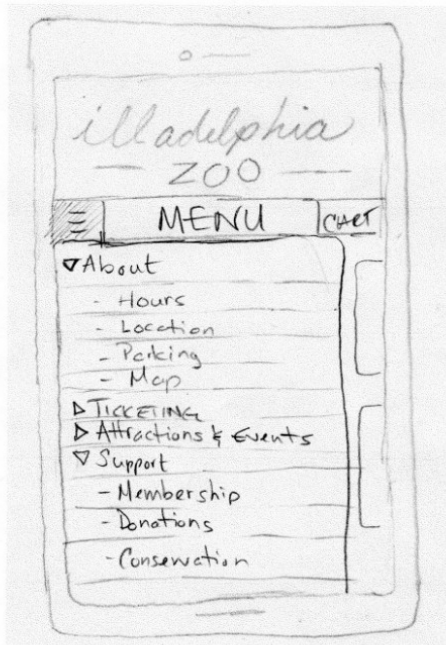 illadelphia
— ZOO —
MENU
CART
▽ About
- Hours
- Location
- Parking
- Map
▷ TICKETING
▷ Attractions & Events
▽ Support
- Membership
- Donations
- Conservation